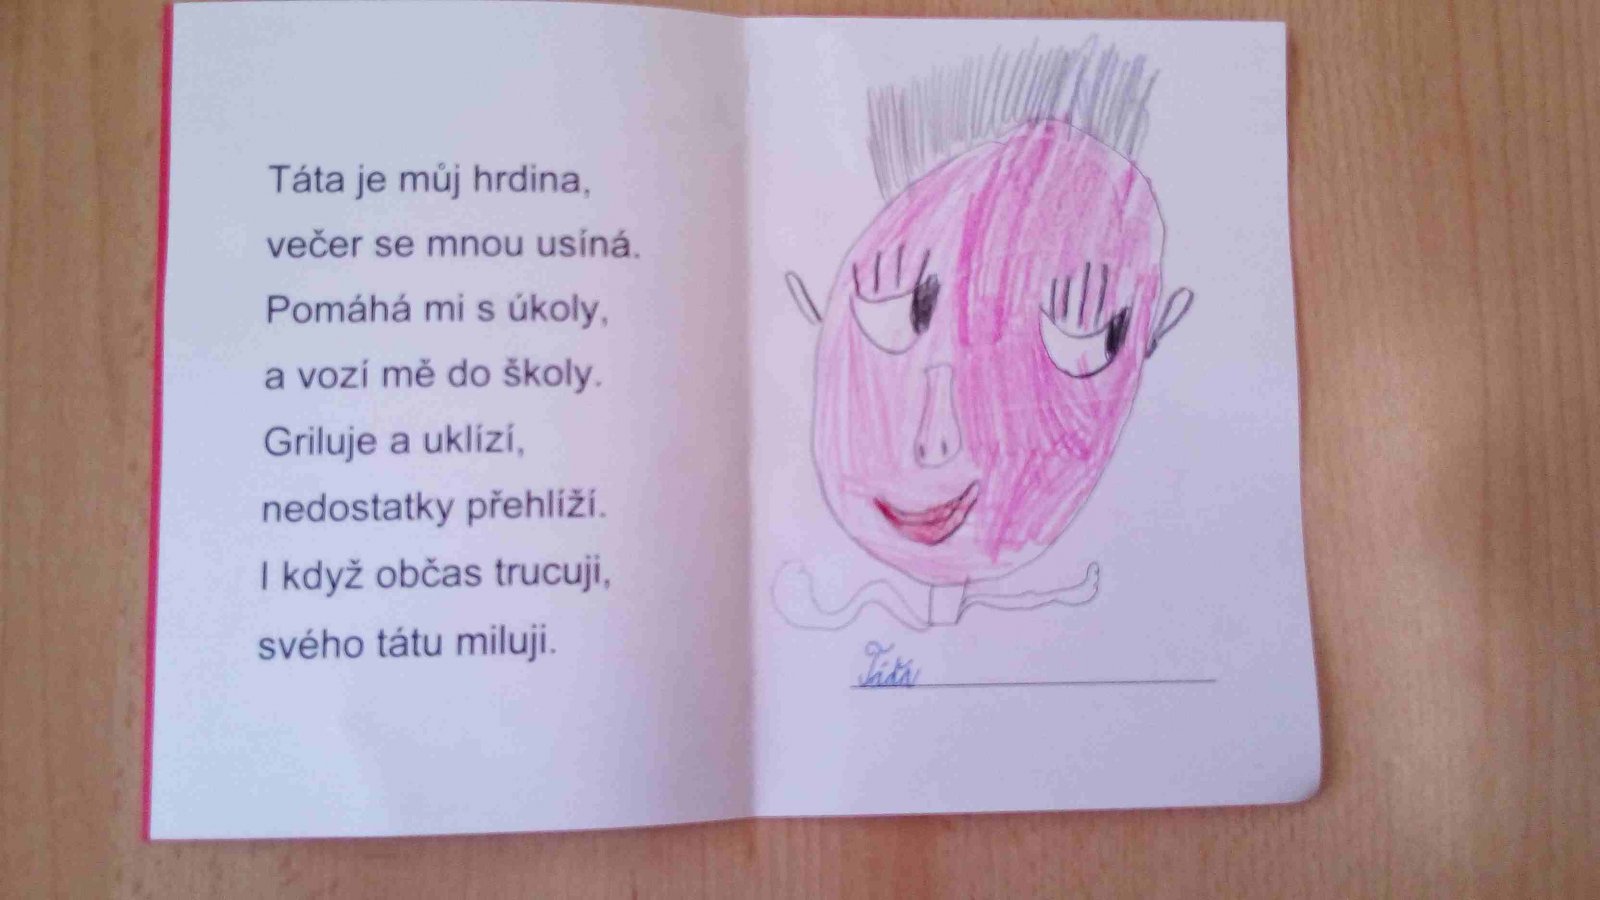 Táta je můj hrdina,
večer se mnou usíná.
Pomáhá mi s úkoly,
a vozí mě do školy.
Griluje a uklízí,
nedostatky přehlíží.
I když občas trucuji,
svého tátu miluji.
Táta